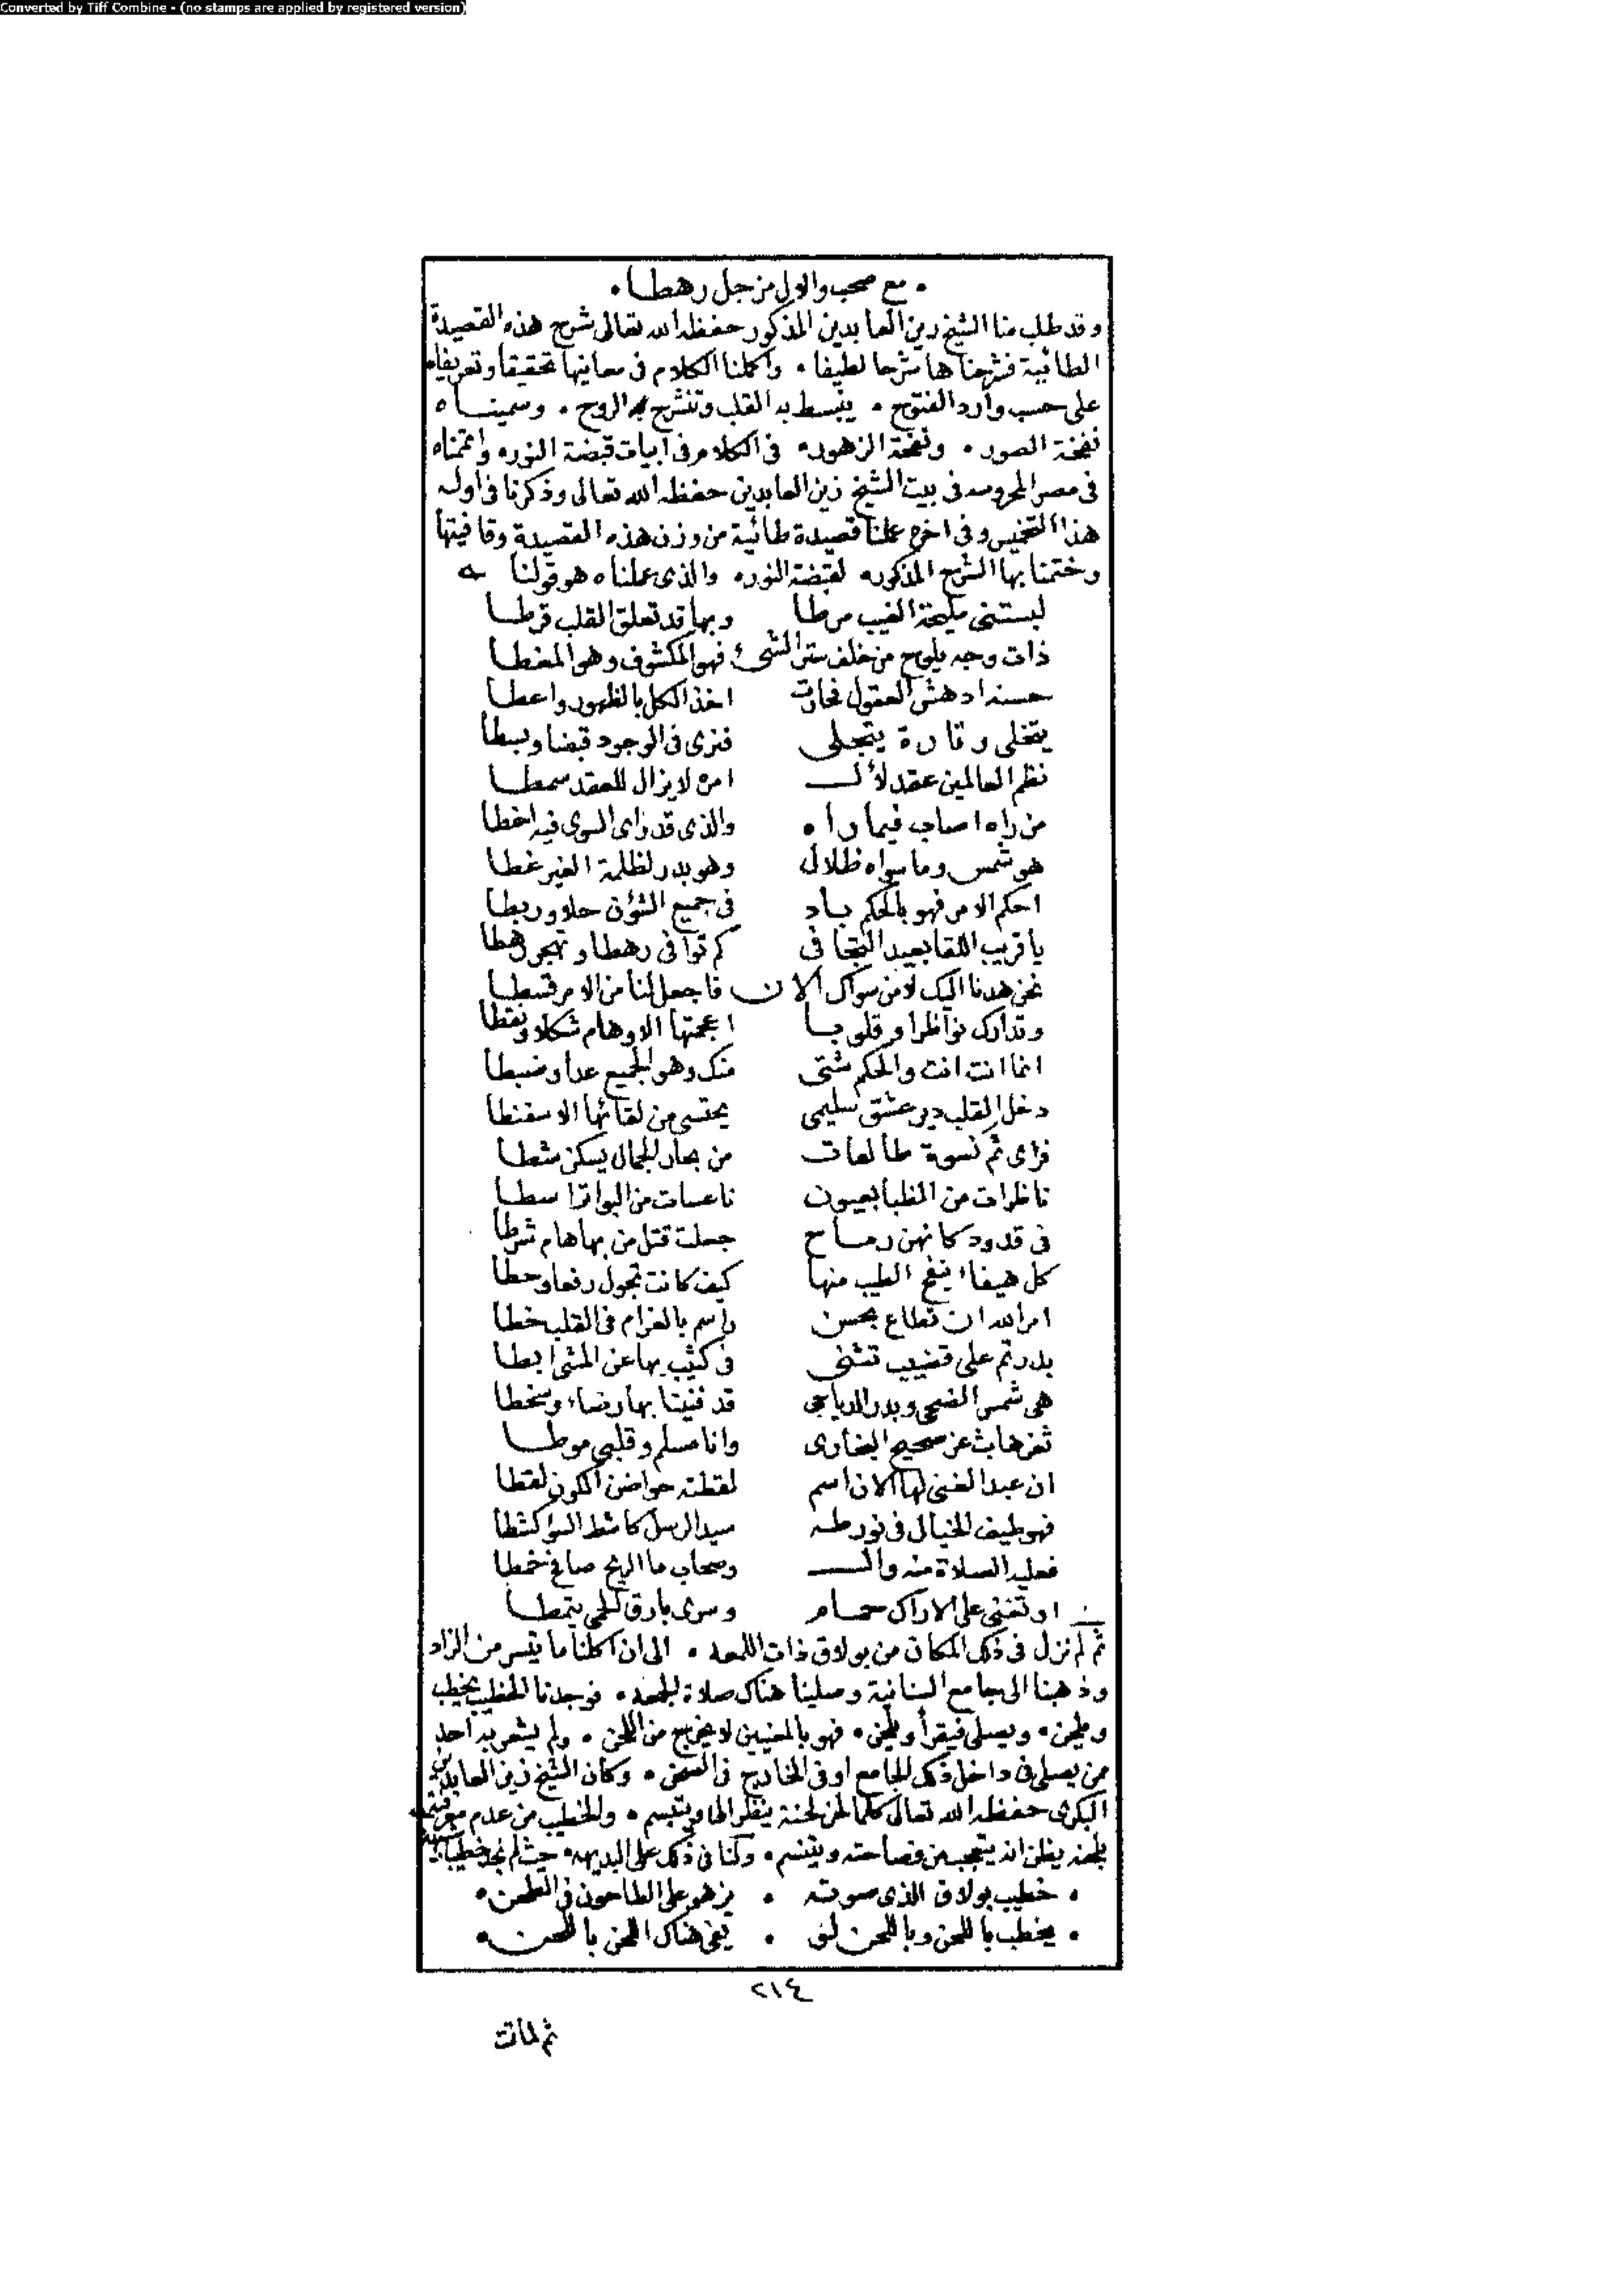 Converted by Tiff Combine - (no stamps are applied by registered version)
• مع صحب والاول من جل رهطا •
وقد طلب منا الشيخ زين العابدين المذكور حفظه الله تعالى شرح هذه القصيدة
الطائية فشرحناها شرحا لطيفا • واكملنا الكلام فى معانيها تحقيقا وتعريفا •
على حسب وارد الفتوح • ينبسط به القلب وتنشرح به الروح • وسميناه
نفخة الصور • ونفحة الزهور • فى الكلام فى ابيات قبضة النور • واتممناه
فى مصر المحروسه فى بيت الشيخ زين العابدين حفظه الله تعالى وذكرنا فى اوله
هذا التخميس وفى اخره عملنا قصيدة طائية من وزن هذه القصيدة وقافيتها
وختمنا بها الشرح المذكور • لقبضة النور • والذى عملناه هو قولنا
لبستنى مليحة الغيب مرطا وبها قد تعلق القلب قرطا
ذات وجه يلوح من خلف ستر الشىء فهو المكشوف وهو المغطا
حسنه ادهش العقول فحارت اخذ الكل بالظهور واعطا
يتخلى وتارة يتجلى فنرى فى الوجود قبضا وبسطا
نظم العالمين عقد لآل امره لا يزال للعقد سمطا
من راه اصاب فيما راه والذى قد راى السوى فيه اخطا
هو شمس وما سواه ظلال وهو بدر لظلمة الغير غطا
احكم الامر فهو بالحكم باد فى جميع الشؤن حلا وربطا
يا قريب اللقا بعيد التجافى كم توافى رهطا وتهجر رهطا
نحن هدنا اليك لا من سواك الان فاجعل لنا من الامر قسطا
وتدارك نواظرا وقلوبا اعجمتها الاوهام شكلا ونقطا
انما انت انت والحكم شتى منك وهو الجميع عدا وضبطا
دخل القلب دير عشق سليمى يحتسى من لقائها الاسفنطا
فراى ثم نسوة طالعات من بحار الجمال يسكن شطا
ناظرات من الظبا بعيون ناعسات من البواتر اسطا
فى قدود كانهن رماح جعلت قتل من بها هام شرطا
كل هيفاء ينفح الطيب منها كيف كانت تجول رفعا وحطا
امر الله ان تطاع بحسن راسم بالغرام فى القلب خطا
بدر تم على قضيب تثنى فى كثيب بها عن المشى ابطا
هى شمس الضحى وبدر الدياجى قد فنينا بها رضاء وسخطا
ثغرها بث عن صحيح البخارى وانا مسلم وقلبى موطا
ان عبد الغنى لها الان اسم لقطته حواضن الكون لقطا
فهو طيف الخيال فى نور طه سيد الرسل كاشط السؤ كشطا
فعليه الصلاة منه وال وصحاب ما الريح صافح خمطا
او تغنى على الاراك حمام وسرى بارق الحمى يتمطا
ثم لم نزل فى ذلك المكان من بولاق ذات اللمعه • الى ان اكلنا ما تيسر من الزاد
وذهبنا الى جامع السنانية وصلينا هناك صلاة الجمعه • فوجدنا الخطيب يخطب
ويلحن • ويصلى فيقرأ ويلحن • فهو بالمعنيين لا يخرج من اللحن • ولم يشعر به احد
ممن يصلى فى داخل ذلك الجامع او فى الخارج فى الصحن • وكان الشيخ زين العابدين
البكرى حفظه الله تعالى كلما لحن لحنة ينظر الى ويتبسم • والخطيب من عدم معرفته
بلحنه يظن انه يتعجب من فصاحته ويتنسم • وقلنا فى ذلك على البديهه • حيث لم نجد خطيبا
• خطيب بولاق الذى صوته • يزهو على الطاحون فى الطحن •
• يخطب باللحن وباللحن لنا • يغنى هناك اللحن باللحن •
٢١٤
ثم لما تت